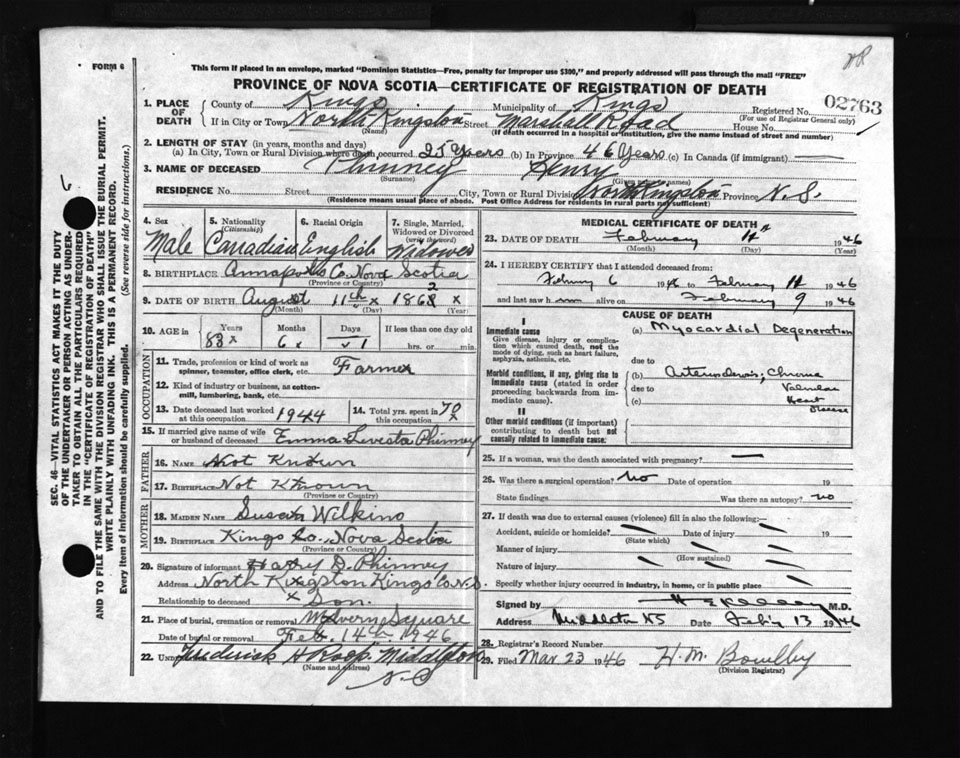 2R
FORM 6
This form if placed in an envelope, marked "Dominion Statistics—Free, penalty for improper use $300," and properly addressed will pass through the mail "FREE"
PROVINCE OF NOVA SCOTIA—CERTIFICATE OF REGISTRATION OF DEATH
02763
1. PLACE OF DEATH { County of Kings Municipality of Kings Registered No.
(For use of Registrar General only)
If in City or Town North Kingston Street Marshall Road House No.
(Name) (If death occurred in a hospital or institution, give the name instead of street and number)
2. LENGTH OF STAY (in years, months and days)
(a) In City, Town or Rural Division where death occurred 25 Years (b) In Province 46 Years (c) In Canada (if immigrant) —
3. NAME OF DECEASED Phinney Henry
(Surname) (Given names)
RESIDENCE No. Street City, Town or Rural Division North Kingston Province N.S.
(Residence means usual place of abode. Post Office Address for residents in rural parts not sufficient)
4. Sex Male
5. Nationality (Citizenship) Canadian
6. Racial Origin English
7. Single, Married, Widowed or Divorced (write the word) Widowed
8. BIRTHPLACE Annapolis Co. Nova Scotia
(Province or Country)
9. DATE OF BIRTH August 11th x 1862 x
(Month) (Day) (Year)
10. AGE in Years Months Days If less than one day old
83 x 6 x 1 hrs. or min.
OCCUPATION
11. Trade, profession or kind of work as spinner, teamster, office clerk, etc. Farmer
12. Kind of industry or business, as cotton-mill, lumbering, bank, etc.
13. Date deceased last worked at this occupation 1944
14. Total yrs. spent in this occupation 70 x
15. If married give name of wife or husband of deceased Emma Phinney
FATHER
16. NAME Not Known
17. BIRTHPLACE Not Known
(Province or Country)
MOTHER
18. MAIDEN NAME Susan Wilkins
19. BIRTHPLACE Kings Co. Nova Scotia
(Province or Country)
20. Signature of informant Harry D. Phinney
Address North Kingston Kings Co. N.S.
Relationship to deceased x Son.
21. Place of burial, cremation or removal Melvern Square
Date of burial or removal Feb. 14th. 1946
22. Frederick Middleton
(Name and address)
N.S
MEDICAL CERTIFICATE OF DEATH
23. DATE OF DEATH February 1946
(Month) (Day) (Year)
24. I HEREBY CERTIFY that I attended deceased from:
February 6 1946 to February 11 1946
and last saw h im alive on February 9 1946
CAUSE OF DEATH
I
Immediate cause (a) Myocardial Degeneration
Give disease, injury or complication which caused death, not the mode of dying, such as heart failure, asphyxia, asthenia, etc.
due to
Morbid conditions, if any, giving rise to immediate cause (stated in order proceeding backwards from immediate cause).
(b) Arteriosclerosis; Chronic
due to Valvular
(c) Heart
Disease
II
Other morbid conditions (if important) contributing to death but not causally related to immediate cause.
25. If a woman, was the death associated with pregnancy? —
26. Was there a surgical operation? no Date of operation 19
State findings Was there an autopsy? no
27. If death was due to external causes (violence) fill in also the following:—
Accident, suicide or homicide? Date of injury 19
(State which)
Manner of injury
(How sustained)
Nature of injury
Specify whether injury occurred in industry, in home, or in public place
Signed by M.D.
Address Middleton NS Date Feb'y 13 1946
28. Registrar's Record Number
29. Filed Mar. 23 1946 H. M. Bowlby
(Division Registrar)
SEC. 46—VITAL STATISTICS ACT MAKES IT THE DUTY
OF THE UNDERTAKER OR PERSON ACTING AS UNDER-
TAKER TO OBTAIN ALL THE PARTICULARS REQUIRED
IN THE "CERTIFICATE OF REGISTRATION OF DEATH"
AND TO FILE THE SAME WITH THE DIVISION REGISTRAR WHO SHALL ISSUE THE BURIAL PERMIT.
WRITE PLAINLY WITH UNFADING INK. THIS IS A PERMANENT RECORD.
Every item of information should be carefully supplied. (See reverse side for instructions.)